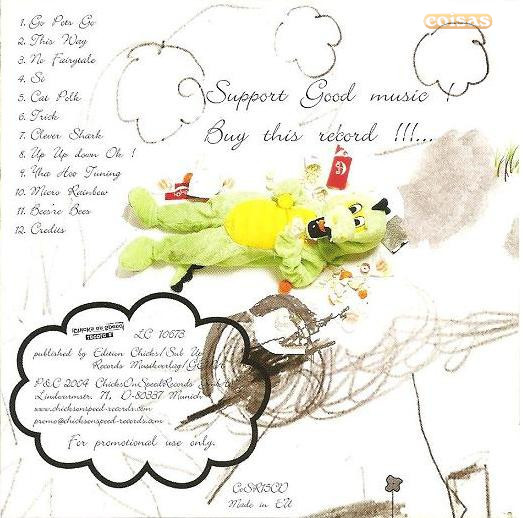 coisas
1. Go Pets Go
2. This Way
3. No Fairytale
4. Sì
5. Cat Polk
6. Trick
7. Clever Shark
8. Up Up down Ok !
9. Yha Hoo Tuning
10. Micro Rainbow
11. Bees're Bees
12. Credits
Support Good music !
Buy this record !!!...
chicks on speed
records
LC 10673
published by Edition Chicks/Sub Up
Records Musikverlag/
P&C 2004 ChicksOnSpeedRecords
Lindwurmstr. 71, D-80337 Munich
www.chicksonspeed-records.com
promo@chicksonspeed-records.com
For promotional use only.
CoSR15CD
Made in EU